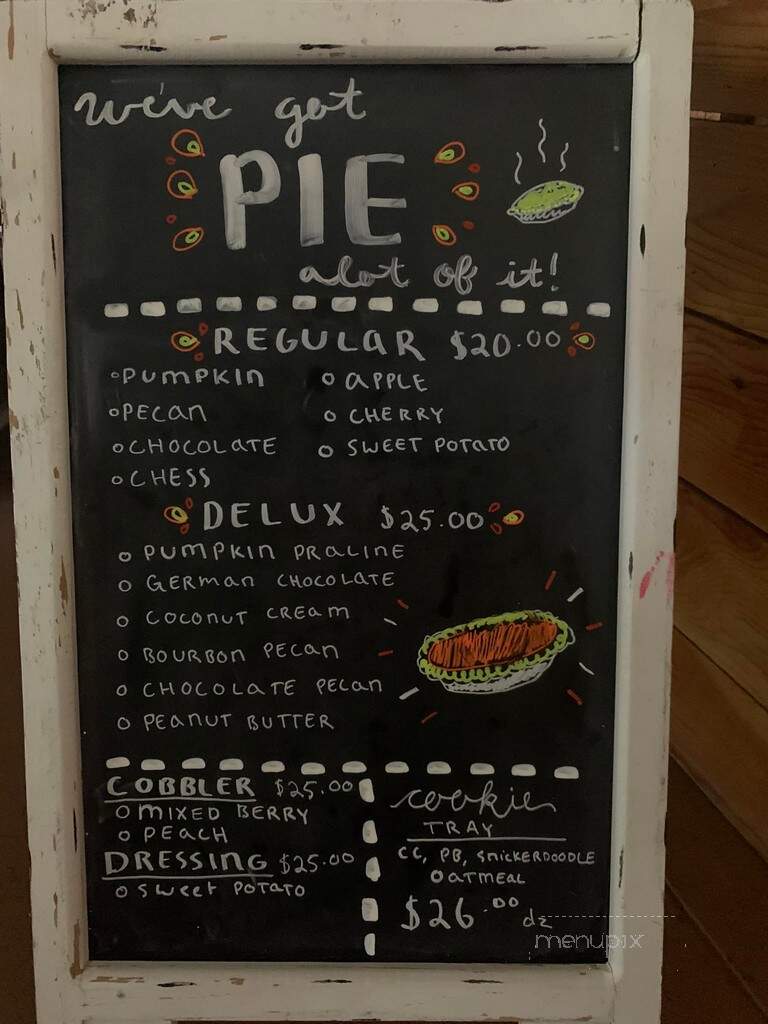 we've got
PIE
alot of it!
REGULAR $20.00
PUMPKIN
APPLE
PECAN
CHERRY
CHOCOLATE
SWEET POTATO
CHESS
DELUX $25.00
PUMPKIN PRALINE
GERMAN CHOCOLATE
COCONUT CREAM
BOURBON PECAN
CHOCOLATE PECAN
PEANUT BUTTER
COBBLER $25.00
MIXED BERRY
PEACH
DRESSING $25.00
SWEET POTATO
cookie
TRAY
CC, PB, SNICKERDOODLE
OATMEAL
$26.00
menupix